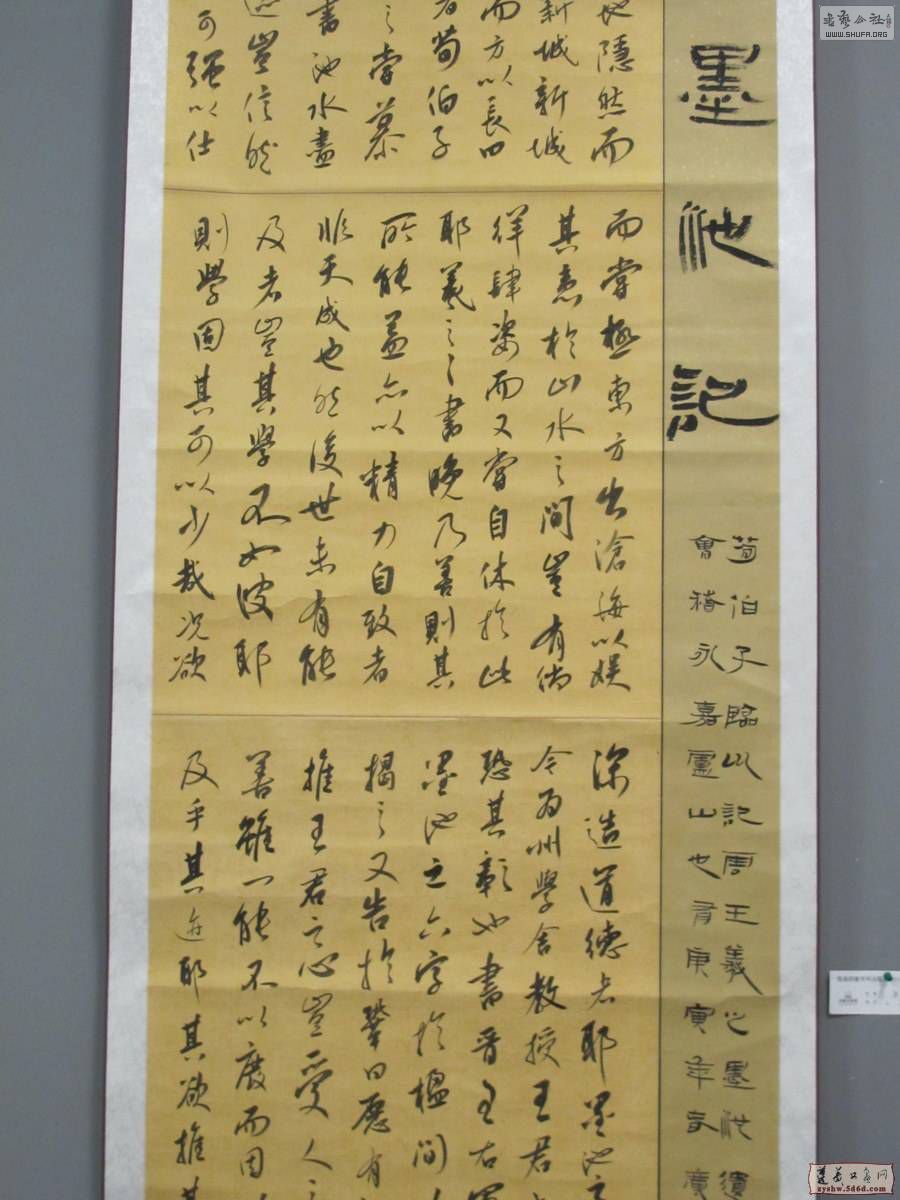 墨池記
荀伯子臨川記
會稽永嘉靈山也庚寅年春
地隱然而
新城新城
而方以長曰
者荀伯子
之嘗慕
書池水盡
迹豈信然
可强以仕
而嘗極東方出滄海以娱
其意於山水之間豈有徜
徉肆姿而又嘗自休於此
耶羲之之書晚乃善則其
所能蓋亦以精力自致者
非天成也然後世未有能
及者豈其學不如彼耶
則學固其可以少哉况欲
深造道德者耶墨池之
令为州學舍教授王君
恐其彰也書晋王右軍
墨池之六字於楹間
揭之又告於鞏曰愿有
推王君之心豈受人之
善雖一能不以廢而因
及乎其迹耶其欲推其
WWW.SHUFA.ORG
zyshw.5d6d.com